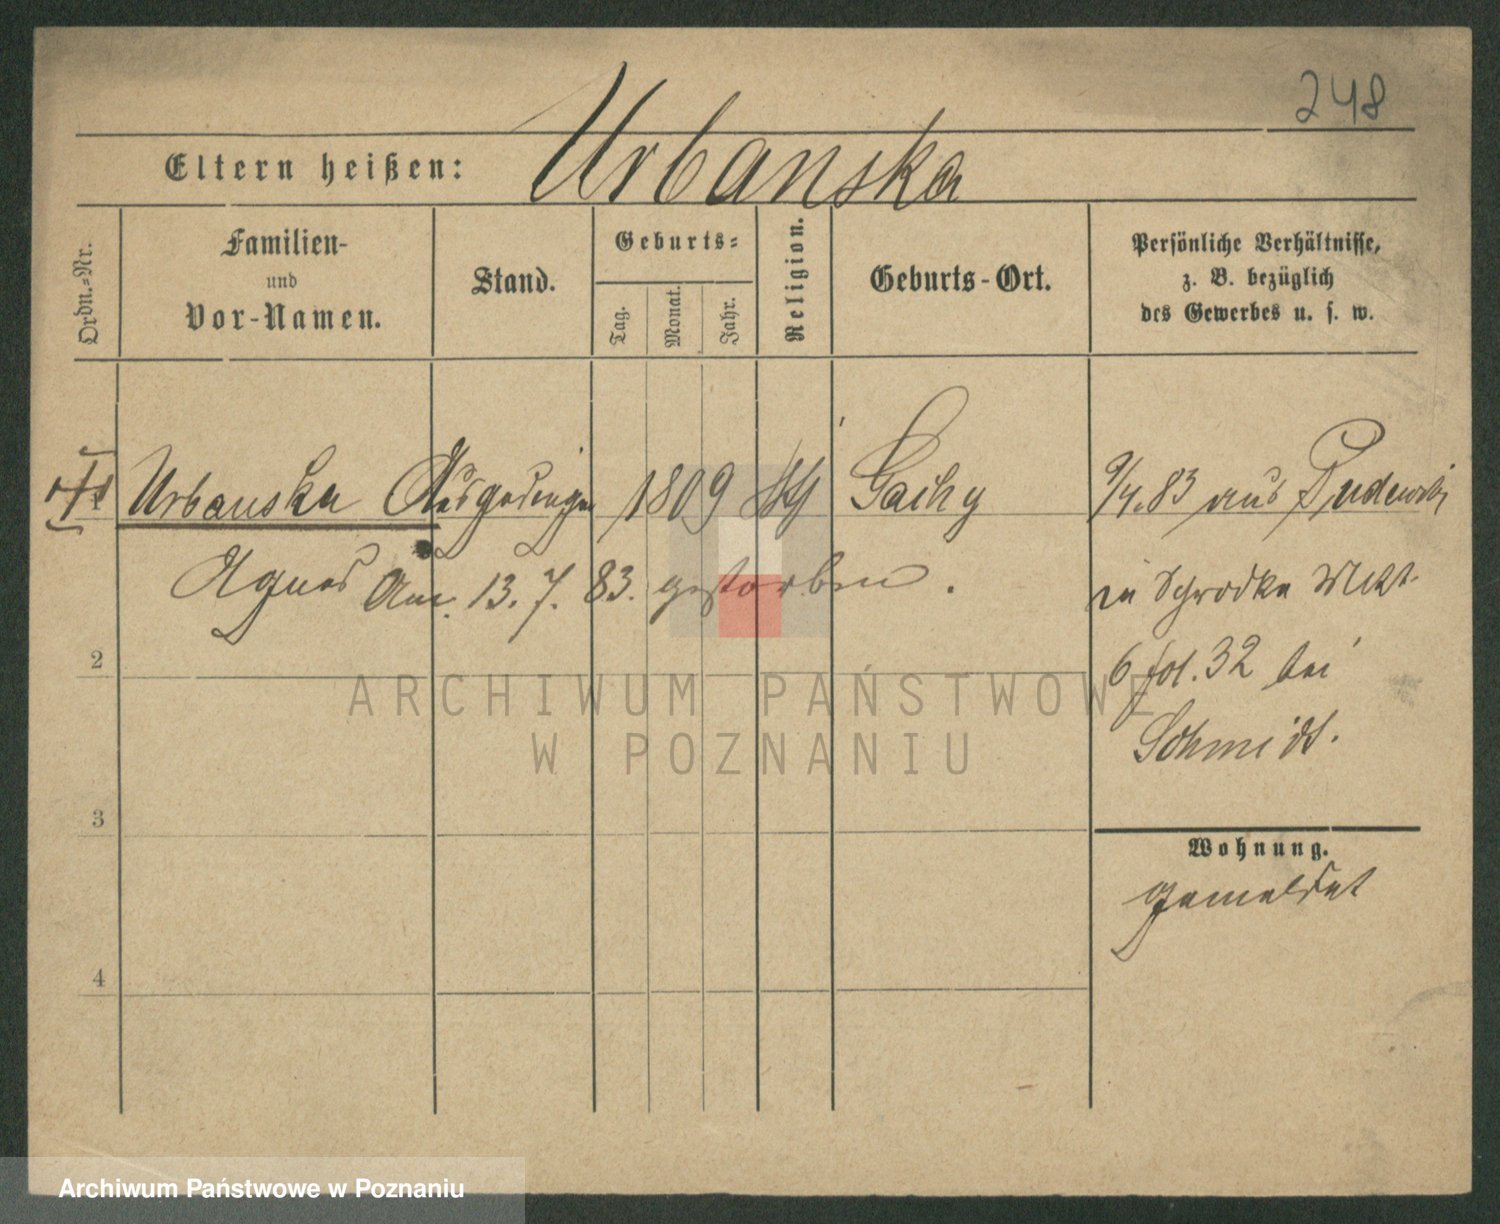 248
Urbanska
Eltern heißen:
Ordn.-Nr.
Familien-
und
Vor-Namen.
Stand.
Geburts-
Tag.
Monat.
Jahr.
Religion.
Geburts-Ort.
Persönliche Verhältnisse,
z. B. bezüglich
des Gewerbes u. s. w.
1 Urbanska 1809
Agnes Am. 13. 7. 83. gestorben.
9/4. 83 aus Pudewitz
in Schrodka Mkt.
6 fol. 32 bei
Schmidt.
2
3
4
Wohnung.
gemeldet
ARCHIWUM PAŃSTWOWE
W POZNANIU
Archiwum Państwowe w Poznaniu